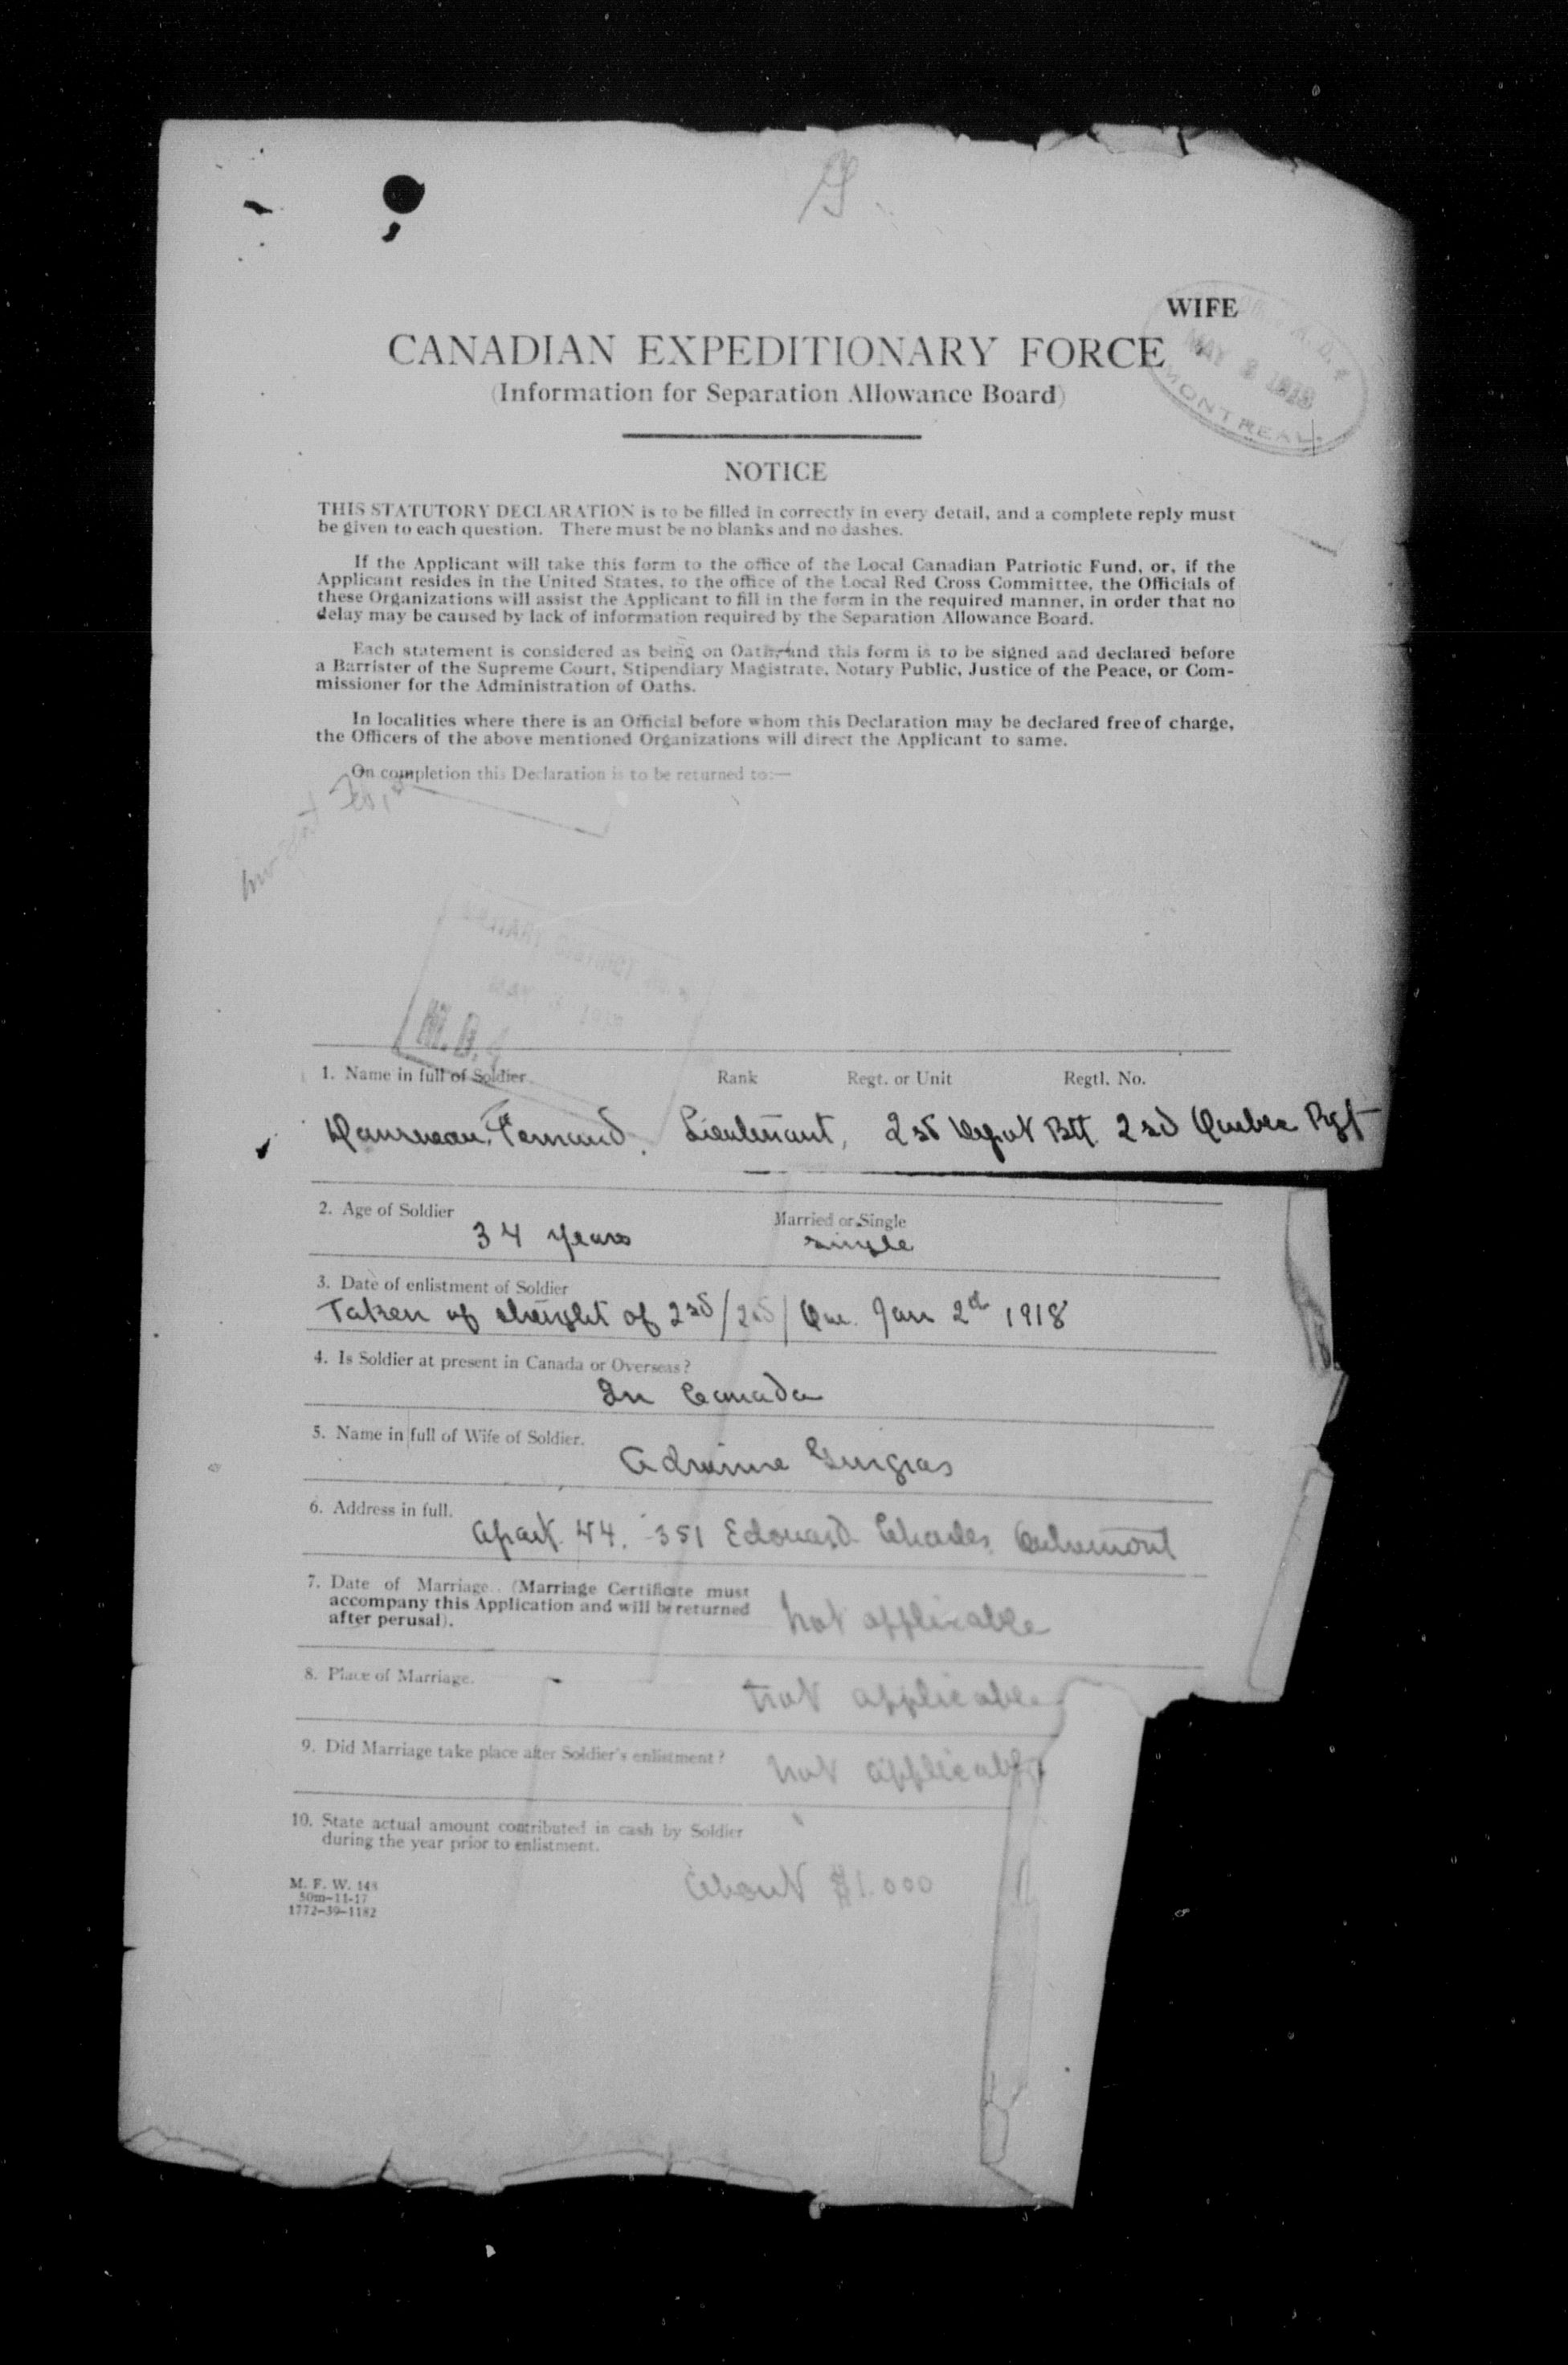 WIFE
CANADIAN EXPEDITIONARY FORCE
(Information for Separation Allowance Board)
MAY 1918
MONTREAL
NOTICE
THIS STATUTORY DECLARATION is to be filled in correctly in every detail, and a complete reply must
be given to each question. There must be no blanks and no dashes.
If the Applicant will take this form to the office of the Local Canadian Patriotic Fund, or, if the
Applicant resides in the United States, to the office of the Local Red Cross Committee, the Officials of
these Organizations will assist the Applicant to fill in the form in the required manner, in order that no
delay may be caused by lack of information required by the Separation Allowance Board.
Each statement is considered as being on Oath, and this form is to be signed and declared before
a Barrister of the Supreme Court, Stipendiary Magistrate, Notary Public, Justice of the Peace, or Com-
missioner for the Administration of Oaths.
In localities where there is an Official before whom this Declaration may be declared free of charge,
the Officers of the above mentioned Organizations will direct the Applicant to same.
On completion this Declaration is to be returned to:—
M.D.4
1. Name in full of Soldier Rank Regt. or Unit Regtl. No.
Fernand. Lieutenant, 2nd Depot Btt. 2nd Quebec Rgt
2. Age of Soldier Married or Single
34 years single
3. Date of enlistment of Soldier
Taken of of 2nd/2nd/ Que. Jan 2d 1918
4. Is Soldier at present in Canada or Overseas?
In Canada
5. Name in full of Wife of Soldier.
Adrienne Gingras
6. Address in full.
Apart. 44. 351 Edouard Charles Outremont
7. Date of Marriage. (Marriage Certificate must
accompany this Application and will be returned
after perusal).
not applicable
8. Place of Marriage.
not applicable
9. Did Marriage take place after Soldier's enlistment?
not applicable
10. State actual amount contributed in cash by Soldier
during the year prior to enlistment.
About $1.000
M. F. W. 148
50m-11-17
1772-39-1182